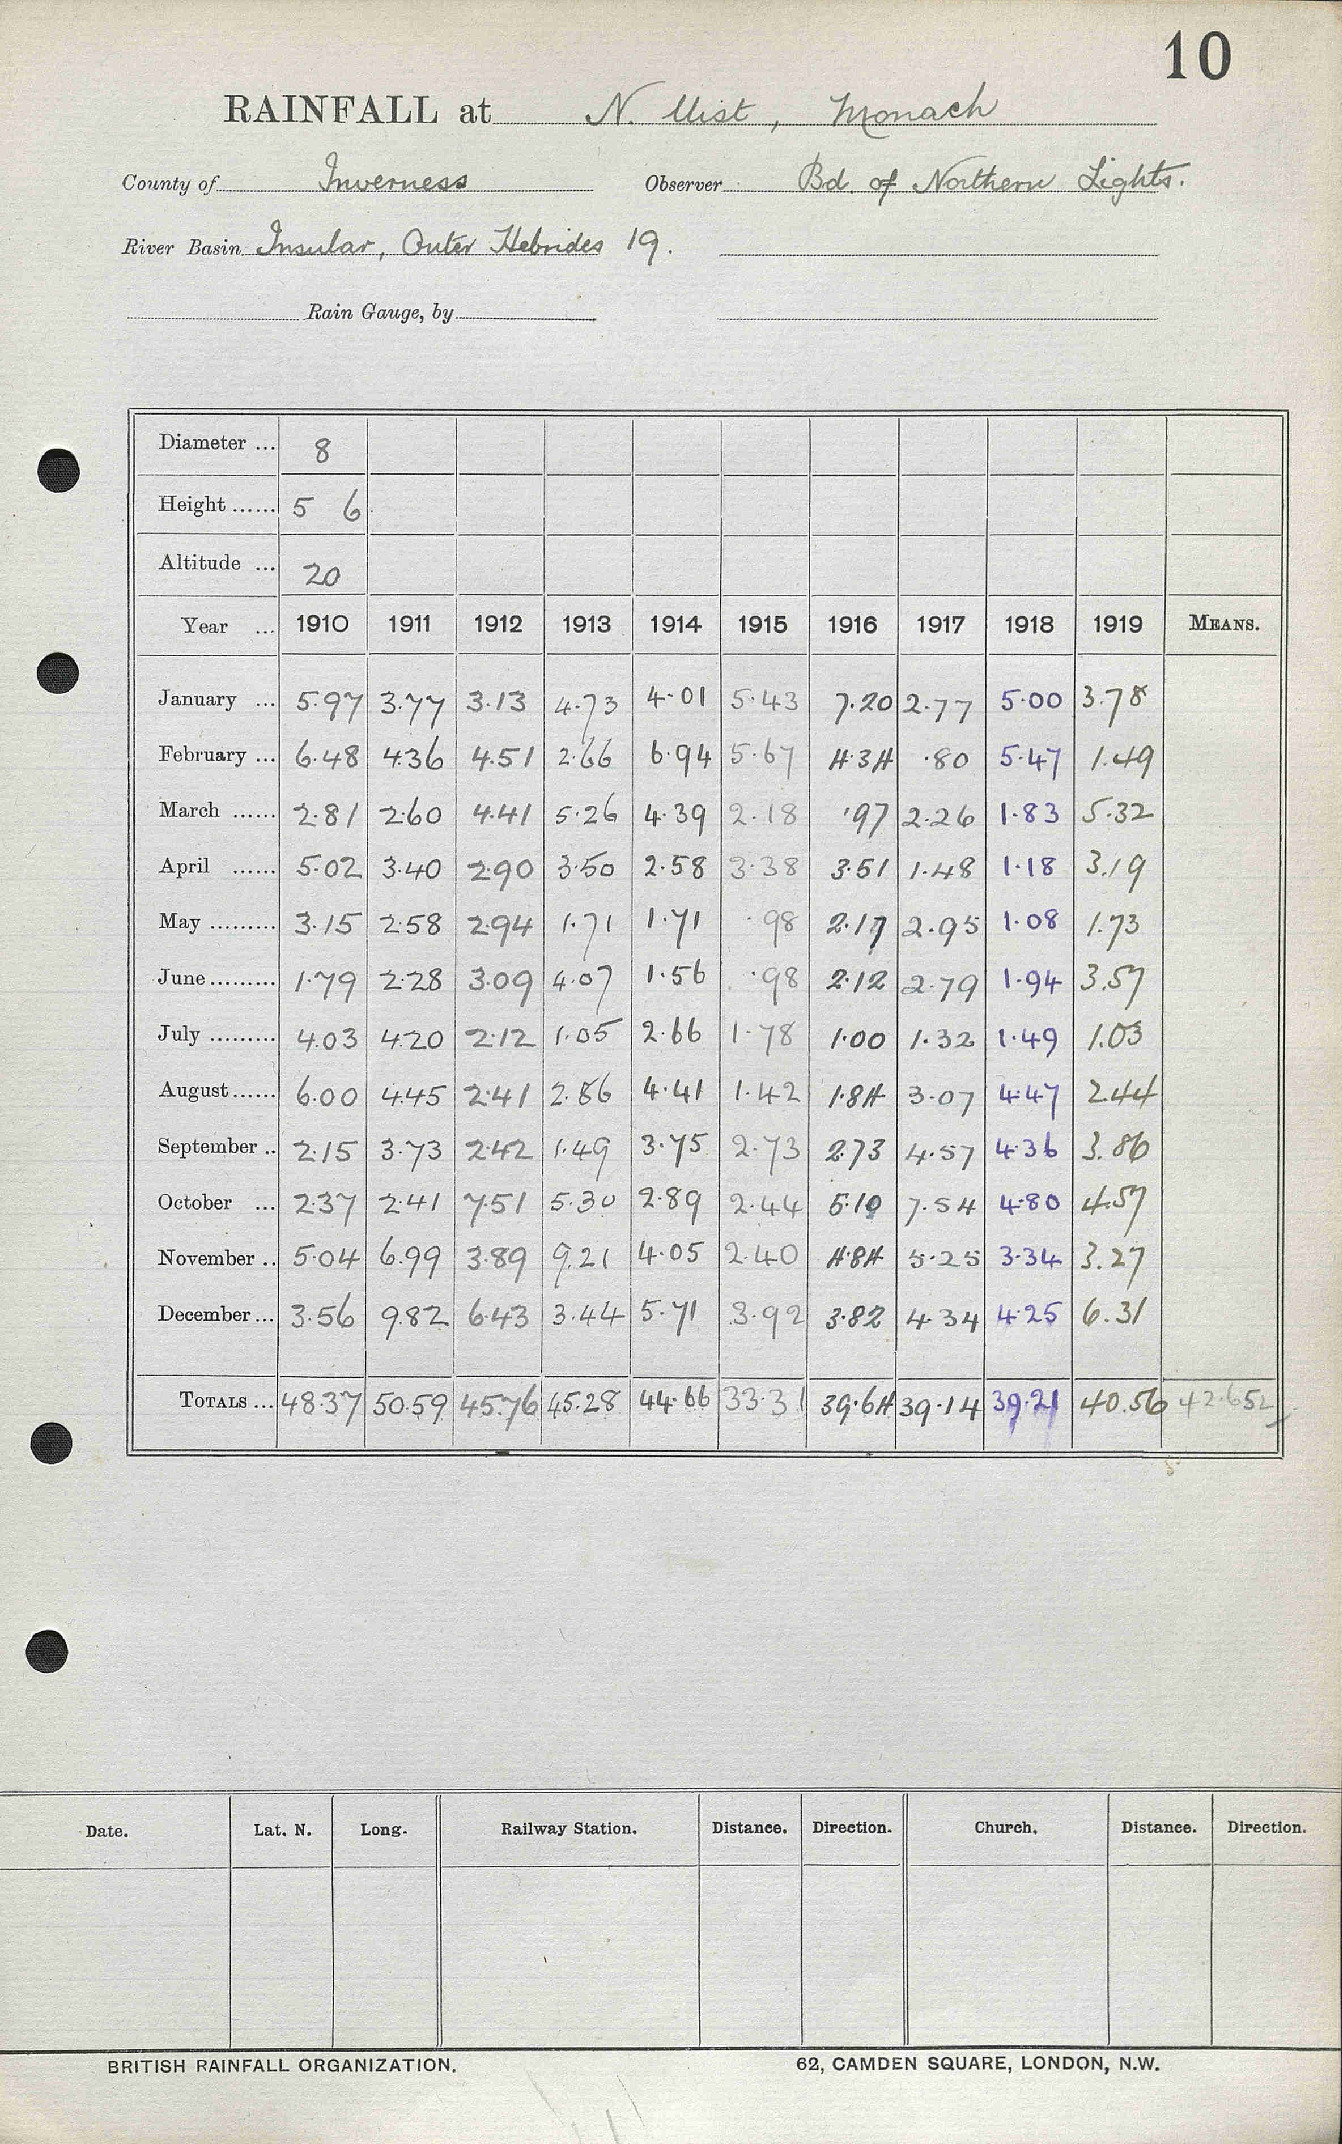 10
RAINFALL at N. Uist, Monach
County of Inverness Observer Bd. of Northern Lights.
River Basin Insular, Outer Hebrides 19.
Rain Gauge, by
Diameter ... 8
Height ...... 5 6
Altitude ... 20
Year ... 1910 1911 1912 1913 1914 1915 1916 1917 1918 1919 MEANS.
January ... 5.97 3.77 3.13 4.73 4.01 5.43 7.20 2.77 5.00 3.78
February ... 6.48 4.36 4.51 2.66 6.94 5.67 4.34 .80 5.47 1.49
March ...... 2.81 2.60 4.41 5.26 4.39 2.18 .97 2.26 1.83 5.32
April ...... 5.02 3.40 2.90 3.50 2.58 3.38 3.51 1.48 1.18 3.19
May ......... 3.15 2.58 2.94 1.71 1.71 .98 2.17 2.95 1.08 1.73
June ......... 1.79 2.28 3.09 4.07 1.56 .98 2.12 2.79 1.94 3.57
July ......... 4.03 4.20 2.12 1.05 2.66 1.78 1.00 1.32 1.49 1.03
August ...... 6.00 4.45 2.41 2.86 4.41 1.42 1.84 3.07 4.47 2.44
September .. 2.15 3.73 2.42 1.49 3.75 2.73 2.73 4.57 4.36 3.86
October ... 2.37 2.41 7.51 5.30 2.89 2.44 5.10 7.54 4.80 4.57
November .. 5.04 6.99 3.89 9.21 4.05 2.40 4.84 5.25 3.34 3.27
December ... 3.56 9.82 6.43 3.44 5.71 3.92 3.82 4.34 4.25 6.31
TOTALS ... 48.37 50.59 45.76 45.28 44.66 33.31 39.64 39.14 39.21 40.56 42.652
Date. Lat. N. Long. Railway Station. Distance. Direction. Church. Distance. Direction.
BRITISH RAINFALL ORGANIZATION. 62, CAMDEN SQUARE, LONDON, N.W.